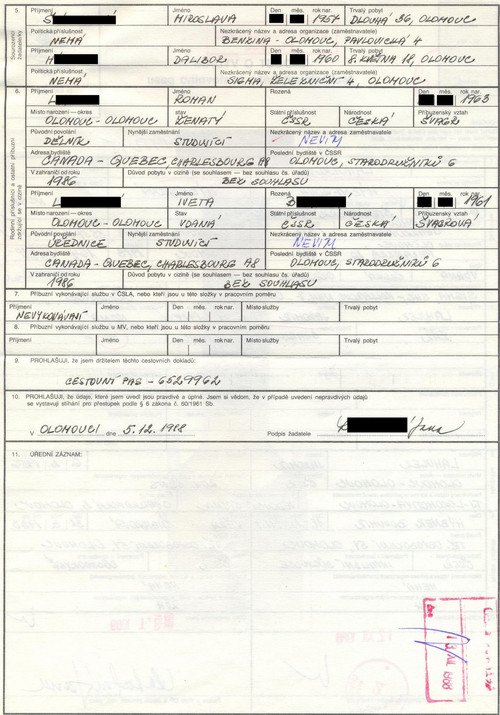 5.
Sourozenci žadatelky
Příjmení Jméno Den měs. rok nar. Trvalý pobyt
MIROSLAVA 1957 DLOUHÁ 36, OLOMOUC
Politická příslušnost Nezkrácený název a adresa organizace (zaměstnavatele)
NEMÁ BENZINA - OLOMOUC, PAVLOVICKÁ 4
Příjmení Jméno Den měs. rok nar. Trvalý pobyt
H DALIBOR 1960 8. KVĚTNA 18, OLOMOUC
Politická příslušnost Nezkrácený název a adresa organizace (zaměstnavatele)
NEMÁ SIGMA, ŽELEZNIČNÍ 4, OLOMOUC
6.
Rodinní příslušníci a ostatní příbuzní zdržující se v cizině
Příjmení Jméno Rozená Den měs. rok nar.
L ROMAN 1963
Místo narození – okres Stav Státní příslušnost Národnost Příbuzenský vztah
OLOMOUC - OLOMOUC ŽENATÝ ČSSR ČESKÁ ŠVAGR
Původní povolání Nynější zaměstnání Nezkrácený název a adresa zaměstnavatele
DĚLNÍK STUDUJÍCÍ NEVÍM
Adresa bydliště Poslední bydliště v ČSSR
CANADA - QUEBEC, CHARLESBOURG OLOMOUC, STARODRUŽINÍKŮ 6
V zahraničí od roku Důvod pobytu v cizině (se souhlasem — bez souhlasu čs. úřadů)
1986 BEZ SOUHLASU
Příjmení Jméno Rozená Den měs. rok nar.
L IVETA B 1961
Místo narození – okres Stav Státní příslušnost Národnost Příbuzenský vztah
OLOMOUC - OLOMOUC VDANÁ ČSSR ČESKÁ ŠVAGROVÁ
Původní povolání Nynější zaměstnání Nezkrácený název a adresa zaměstnavatele
ÚŘEDNICE STUDUJÍCÍ NEVÍM
Adresa bydliště Poslední bydliště v ČSSR
CANADA - QUEBEC, CHARLESBOURG OLOMOUC, STARODRUŽINÍKŮ 6
V zahraničí od roku Důvod pobytu v cizině (se souhlasem — bez souhlasu čs. úřadů)
1986 BEZ SOUHLASU
7. Příbuzní vykonávající službu v ČSLA, nebo kteří jsou u této složky v pracovním poměru
Příjmení Jméno Den měs. rok nar. Místo služby Trvalý pobyt
NEVYKONÁVAJÍ
8. Příbuzní vykonávající službu u MV, nebo kteří jsou u této složky v pracovním poměru
Příjmení Jméno Den měs. rok nar. Místo služby Trvalý pobyt
9. PROHLAŠUJI, že jsem držitelem těchto cestovních dokladů:
CESTOVNÍ PAS - 6529962
10. PROHLAŠUJI, že údaje, které jsem uvedl jsou pravdivé a úplné. Jsem si vědom, že v případě uvedení nepravdivých údajů
se vystavuji stíhání pro přestupek podle § 6 zákona č. 60/1961 Sb.
v OLOMOUCI dne 5.12.1988 Podpis žadatele Jana
11. ÚŘEDNÍ ZÁZNAM: